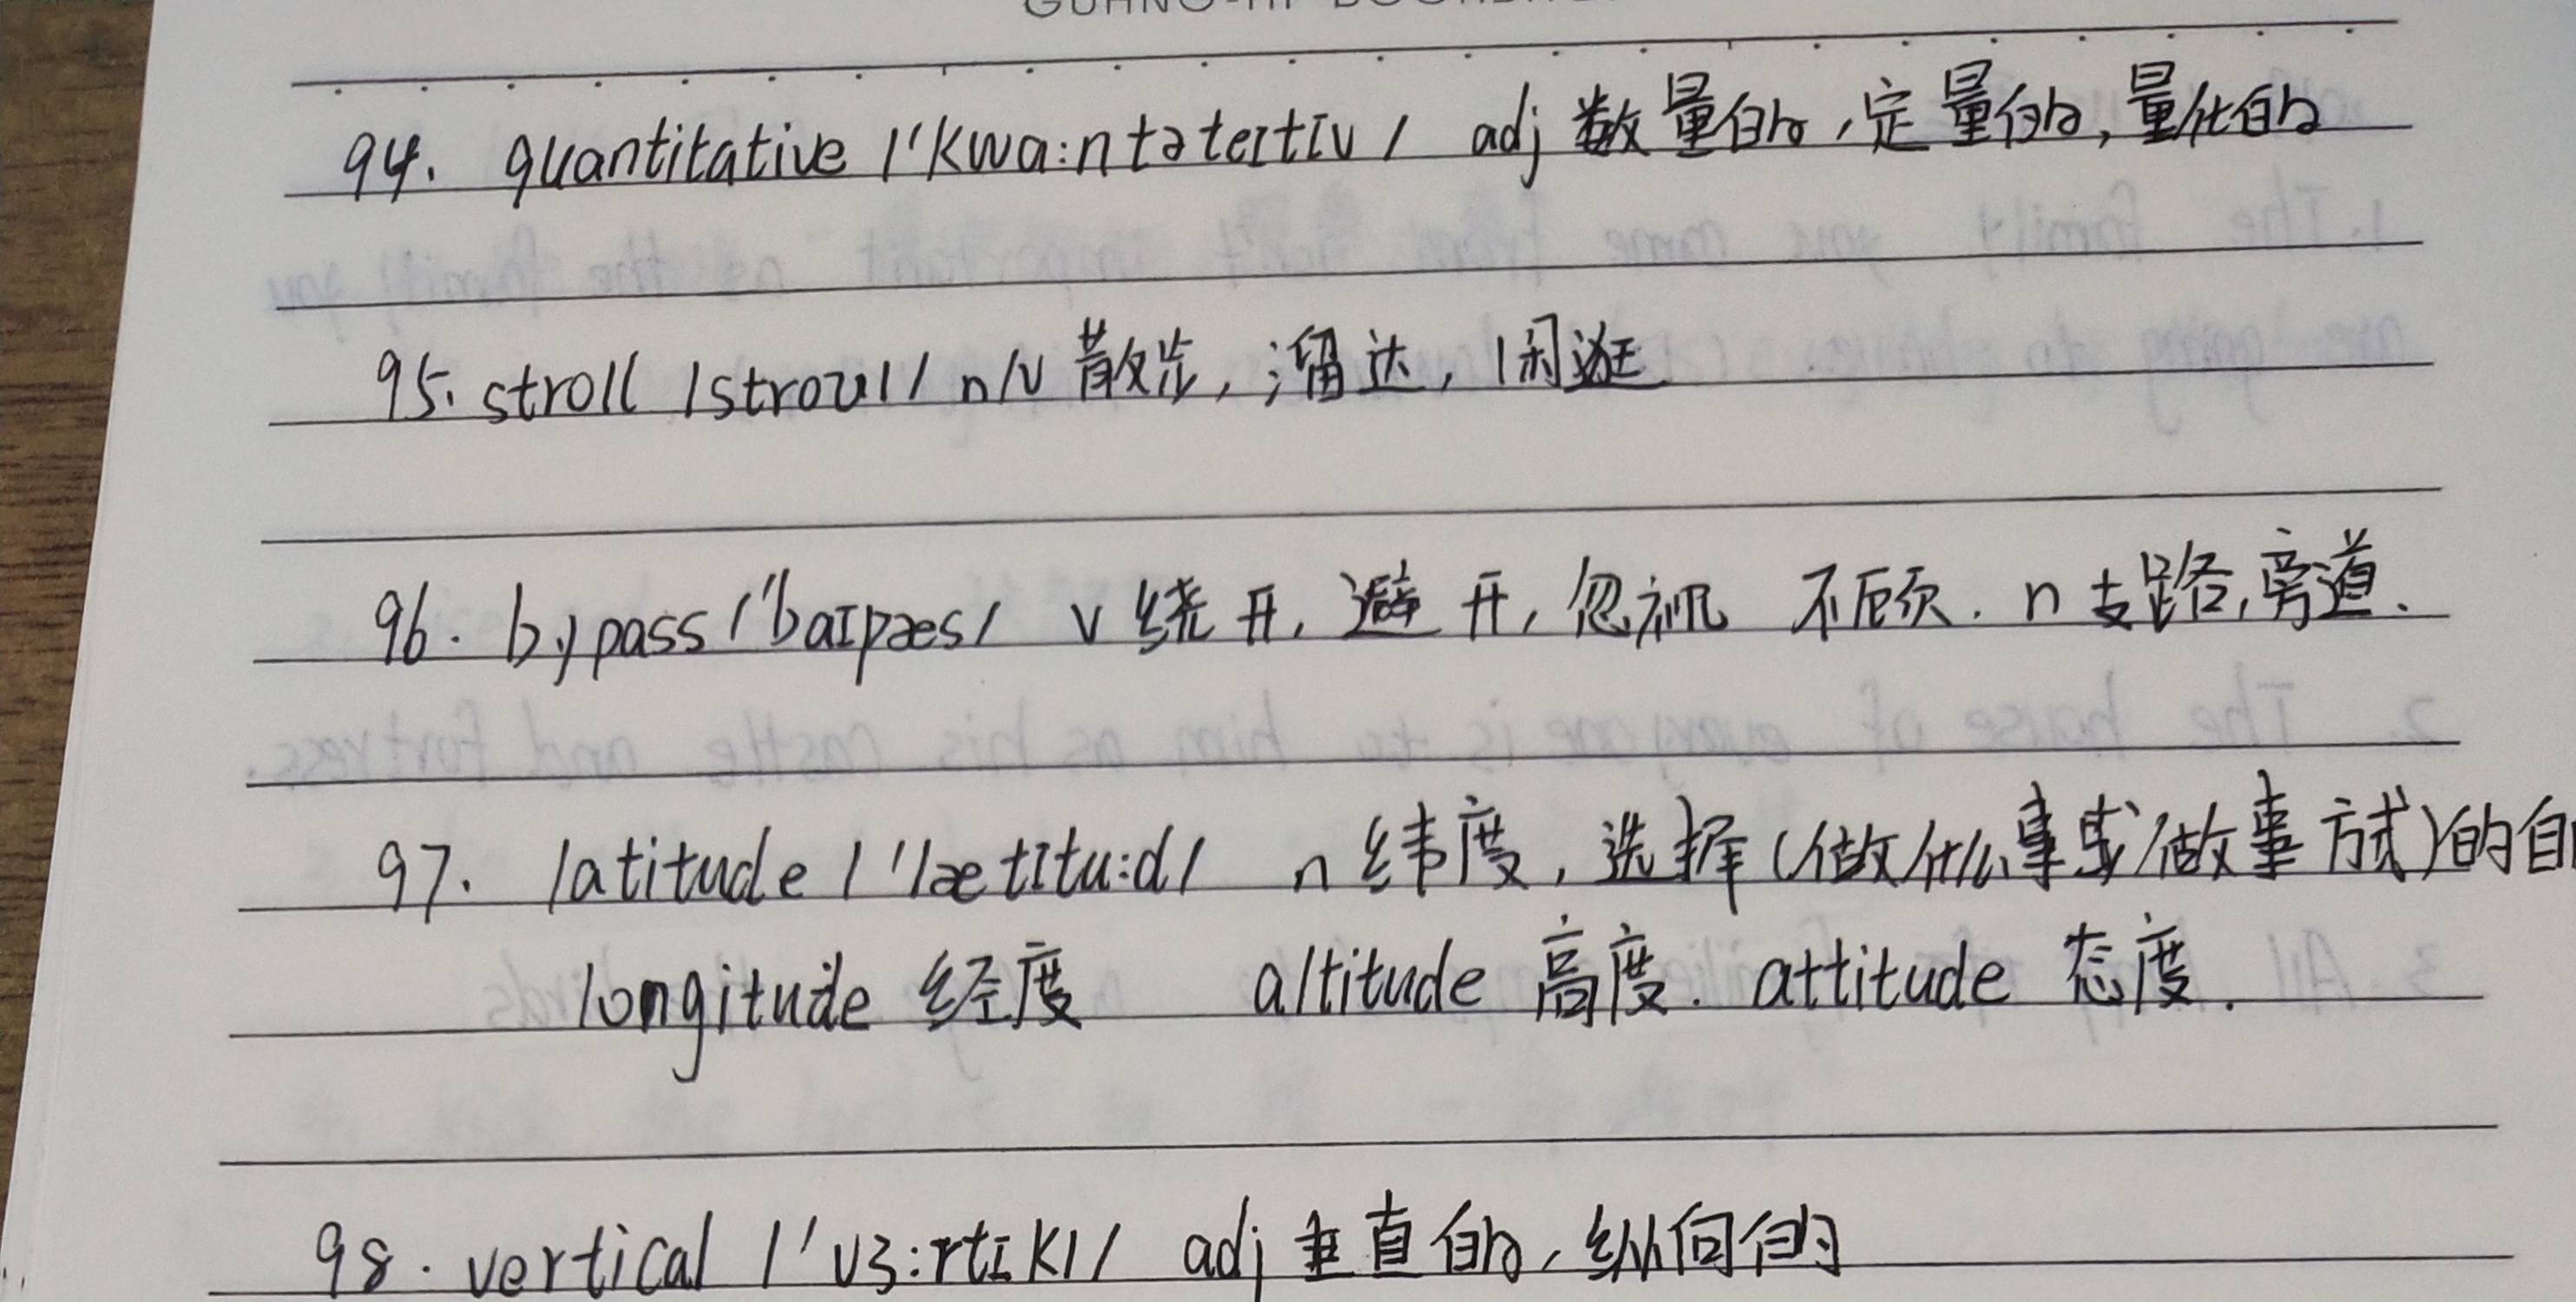 94. quantitative /ˈkwɑ:ntəteɪtɪv/ adj 数量的,定量的,量化的
95. stroll /stroʊl/ n/v 散步,溜达,闲逛
96. bypass /ˈbaɪpæs/ v 绕开,避开,忽视 不顾. n 支路,旁道.
97. latitude /ˈlætɪtu:d/ n 纬度,选择(做什么事或做事方式)的自
longitude 经度 altitude 高度. attitude 态度.
98. vertical /ˈvɜ:rtɪkl/ adj 垂直的,纵向的